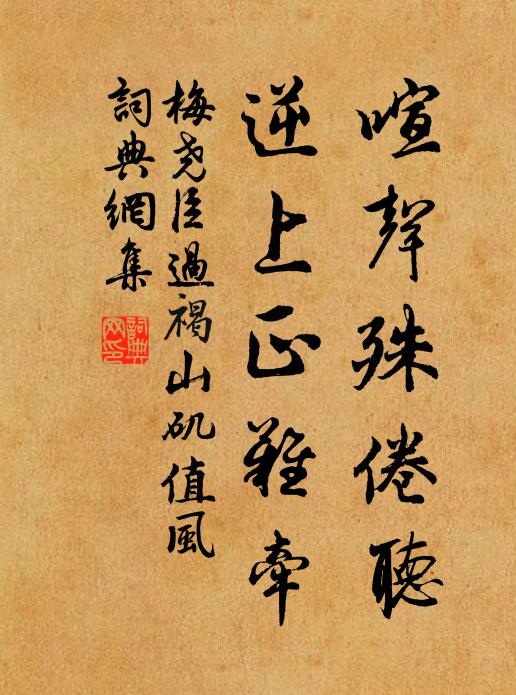 喧聲殊倦聽
逆上正難牽
梅尧臣過褐山矶值風
詞典網集
詞典
网印